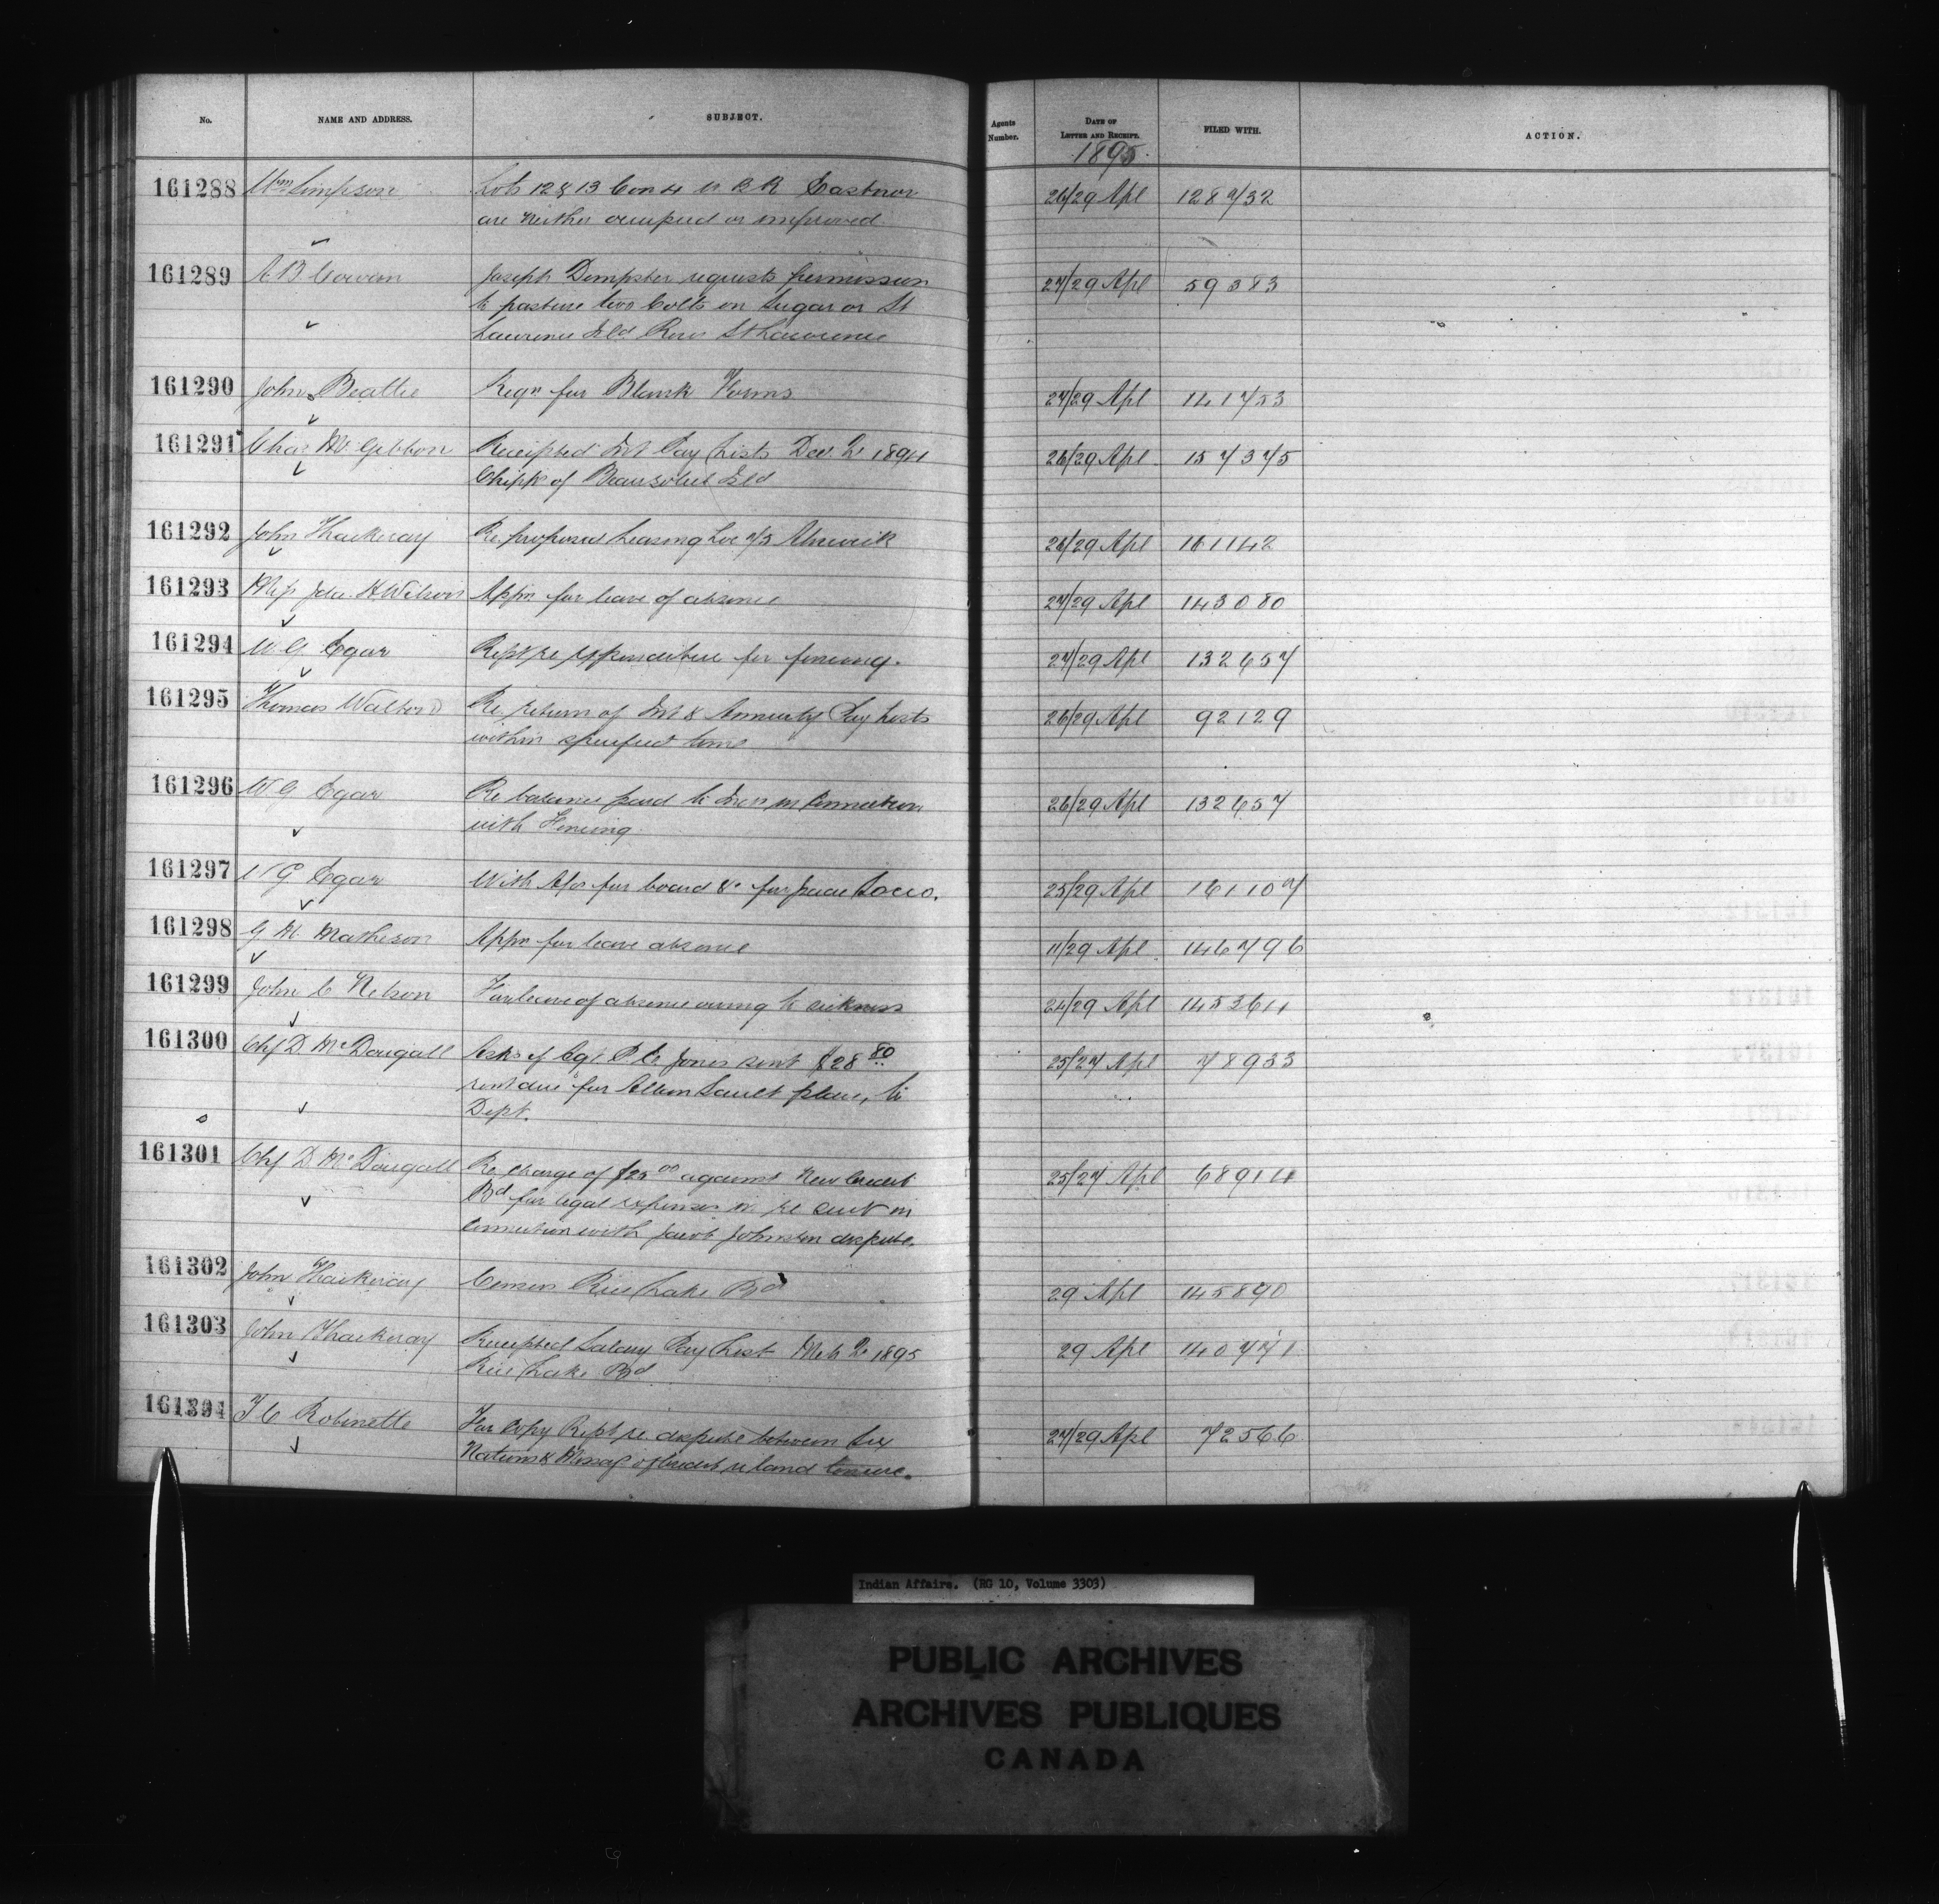 No.
NAME AND ADDRESS.
SUBJECT.
Agents Number.
DATE OF LETTER AND RECEIPT.
FILED WITH.
ACTION.
1895.
161288 Wm Simpson Lots 12 & 13 Con 4 W B R Eastnor 26/29 Apl 128732
are neither occupied or improved
161289 A B Cowan Joseph Dempster requests permission 27/29 Apl 59383
to pasture two Colts on Sugar or St
Lawrence Isld River St Lawrence
161290 John Beattie Reqn for Blank Forms 27/29 Apl 141753
161291 Chas McGibbon Receipted Int Pay Lists Dec. Qr 1894 26/29 Apl 157375
Chipps of Beausoliel Isld
161292 John Thackeray Re proposed Leasing Loc 7/3 Alnwick 26/29 Apl 161142
161293 Miss Ida H Wilson Appn for leave of absence 27/29 Apl 143080
161294 W G Egar Rept re expenditure for fencing. 27/29 Apl 132657
161295 Thomas Walton Re. return of Int & Annuity Pay Lists 26/29 Apl 92129
within specified time
161296 W G Egar Re balance paid to Inds in Connection 26/29 Apl 132657
with Fencing.
161297 W G Egar With A/cs for board &c 25/29 Apl 161107
161298 G M. Matheson Appn for leave absence 11/29 Apl 146796
161299 John C Nelson For leave of absence owing to sickness 24/29 Apl 145364
161300 Chf D. McDougall Asks if Agt. P E Jones sent $28 80 25/27 Apl 78933
rent due for Allan Sault place, to
Dept.
161301 Chf D. McDougall Re charge of $25 00 against New Credit 25/27 Apl 68914
Bd for legal expenses in re suit in
connection with Jacob Johnston dispute.
161302 John Thackeray Census Rice Lake Bd 29 Apl 145890
161303 John Thackeray Receipted Salary Pay List Mch Qr 1895 29 Apl 140771
Rice Lake Bd
161304 T C Robinette For Copy Rept re. dispute between Six 27/29 Apl 72566
Nations & Missag of Credit re land tenure.
Indian Affairs. (RG 10, Volume 3303)
PUBLIC ARCHIVES
ARCHIVES PUBLIQUES
CANADA